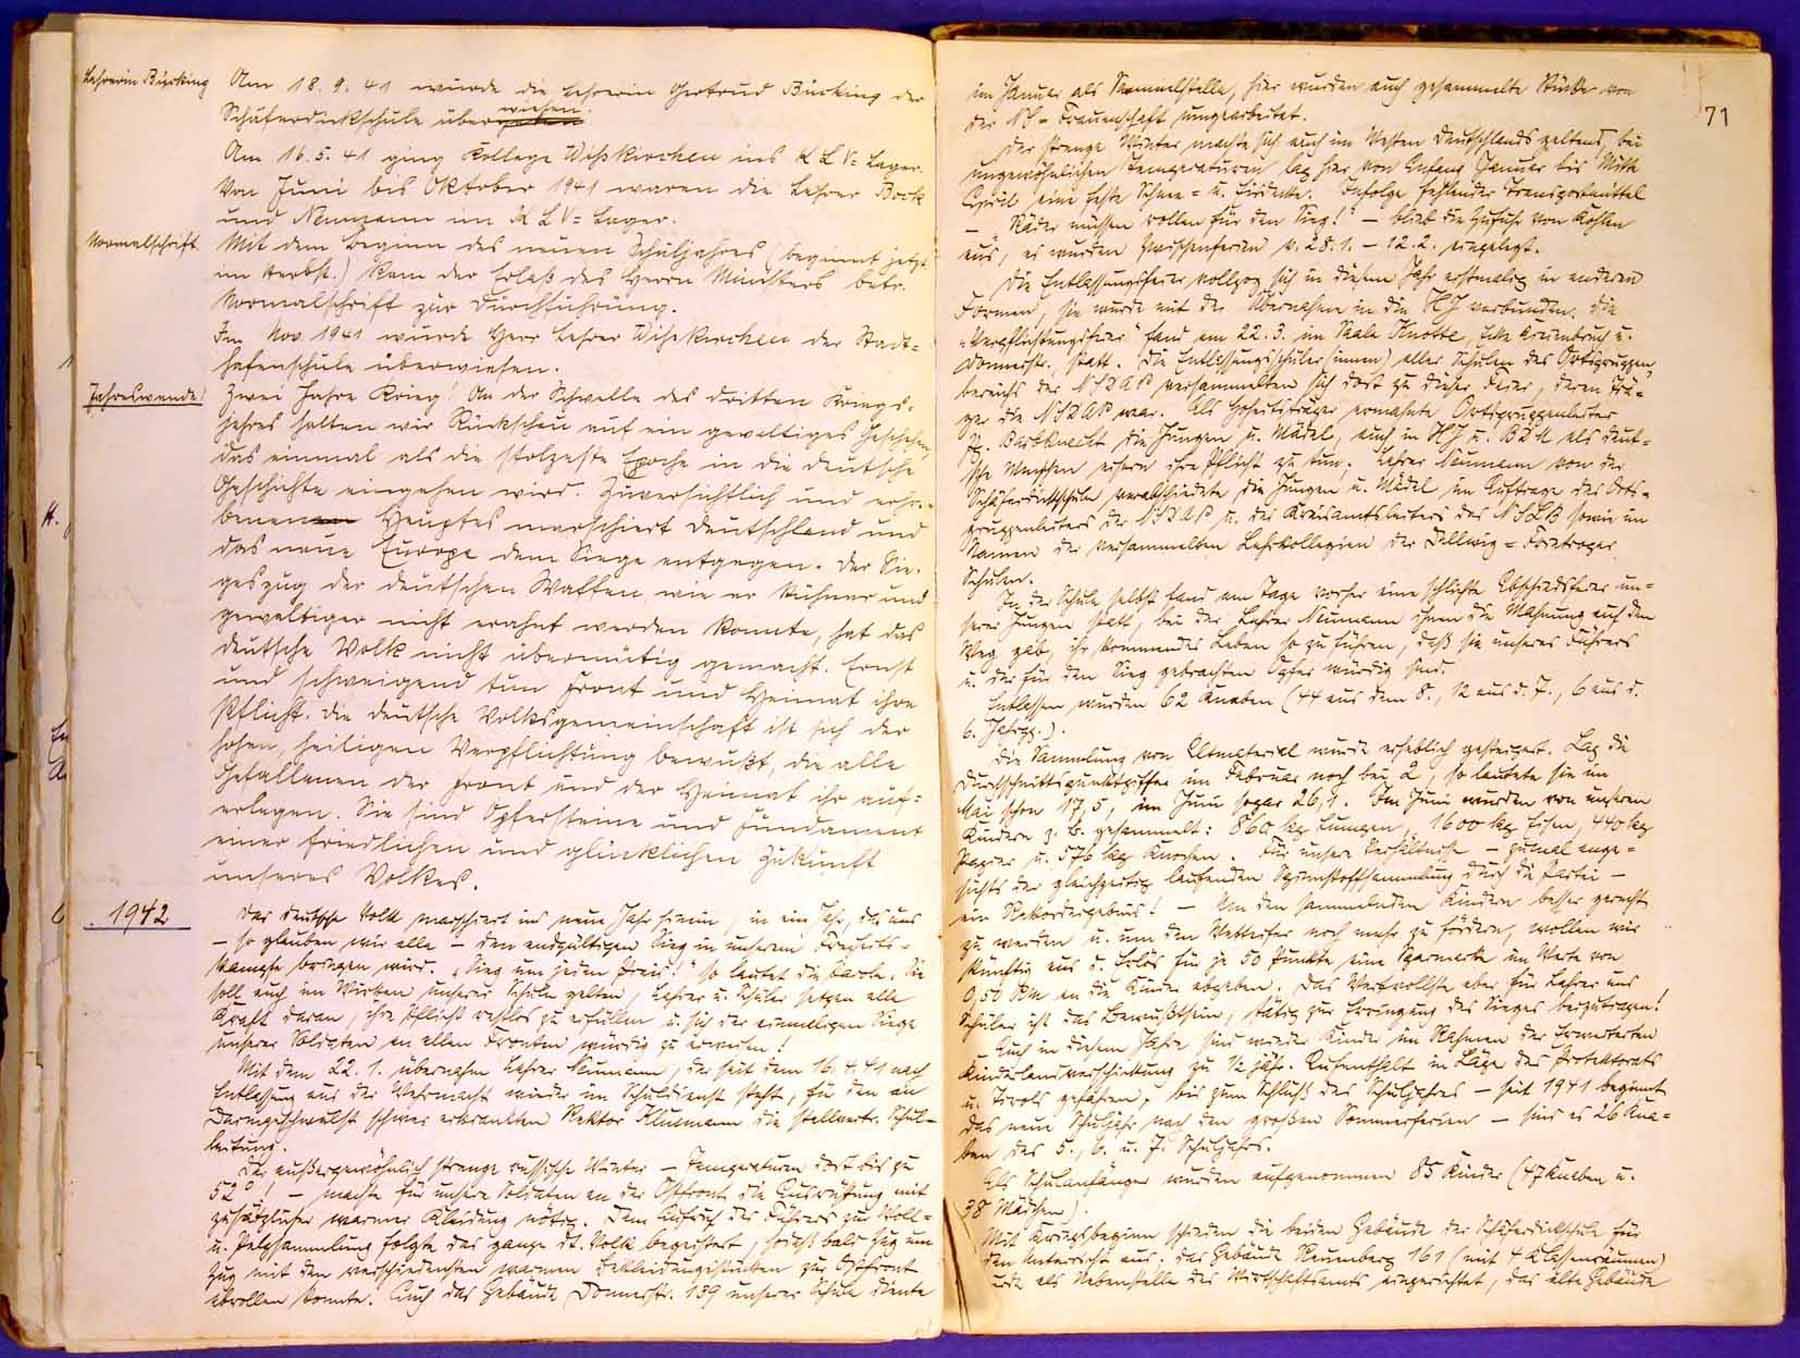 Lehrerin Bürking
Am 18. 9. 41 wurde die Lehrerin Gertrud Bürking der
Schäferdiekschule überwiesen.
Am 16. 5. 41 ging Kollege Wißkirchen ins KLV=Lager.
Von Juni bis Oktober 1941 waren die Lehrer Bock
und Neumann im KLV=Lager.
Normalschrift
Mit dem Beginn des neuen Schuljahres (beginnt jetzt
im Herbst.) kam der Erlaß des Herrn Ministers betr.
Normalschrift zur Durchführung.
Im Nov. 1941 wurde Herr Lehrer Wißkirchen der Stadt=
hafenschule überwiesen.
Jahreswende!
Zwei Jahre Krieg! An der Schwelle des dritten Kriegs=
jahres halten wir Rückschau auf ein gewaltiges Geschehen,
das einmal als die stolzeste Epoche in die deutsche
Geschichte eingehen wird. Zuversichtlich und erho=
benen Hauptes marschiert Deutschland und
das neue Europa dem Siege entgegen. Der Sie=
geszug der deutschen Waffen, wie er kühner und
gewaltiger nicht erahnt werden konnte, hat das
deutsche Volk nicht übermütig gemacht. Ernst
und schweigend tun Front und Heimat ihre
Pflicht. Die deutsche Volksgemeinschaft ist sich der
hohen, heiligen Verpflichtung bewußt, die alle
Gefallenen der Front und der Heimat ihr auf=
erlegen. Sie sind Opfersteine und Fundament
einer friedlichen und glücklichen Zukunft
unseres Volkes.
1942
Das deutsche Volk marschiert ins neue Jahr hinein, in ein Jahr, das uns
– so glauben wir alle – den endgültigen Sieg in unserem Freiheits=
kampfe bringen wird. „Sieg um jeden Preis!" so lautet die Parole. Sie
soll auch im Wirken unserer Schule gelten, Lehrer u. Schüler setzen alle
Kraft daran, ihre Pflicht restlos zu erfüllen u. sich der einmaligen Siege
unserer Soldaten an allen Fronten würdig zu erweisen!
Mit dem 22. 1. übernahm Lehrer Neumann, der seit dem 16. 4. 41 nach
Entlassung aus der Wehrmacht wieder im Schuldienst steht, für den an
Darmgeschwulst schwer erkrankten Rektor Klusmann die stellvertr. Schul=
leitung.
Der außergewöhnlich strenge russische Winter – Temperaturen dort bis zu
52°! – machte für unsere Soldaten an der Ostfront die Ausrüstung mit
zusätzlicher warmer Kleidung nötig. Dem Aufruf des Führers zur Woll=
u. Pelzsammlung folgte das ganze dt. Volk begeistert, sodaß bald Zug um
Zug mit den verschiedensten warmen Bekleidungsstücken zur Ostfront
abrollen konnte. Auch das Gebäude Donnerstr. 139 unserer Schule diente
71
im Januar als Sammelstelle, hier wurden auch gesammelte Stücke von
der NS-Frauenschaft umgearbeitet.
Der strenge Winter machte sich auch im Westen Deutschlands geltend, bei
ungewöhnlichen Temperaturen lag hier von Anfang Januar bis Mitte
April eine feste Schnee= u. Eisdecke. Infolge fehlender Transportmittel
– „Räder müssen rollen für den Sieg!" – blieb die Zufuhr von Kohlen
aus, es wurden Zwischenferien v. 28. 1. – 12. 2. eingelegt.
Die Entlassungsfeier vollzog sich in diesem Jahr erstmalig in anderen
Formen, sie wurde mit der Übernahme in die HJ verbunden. Die
„Verpflichtungsfeier" fand am 22. 3. im Saale Knotte, Ecke u.
Donnerstr. statt. Die Entlassungsschüler(innen) aller Schulen des Ortsgruppen=
bereichs der NSDAP versammelten sich dort zu dieser Feier, deren Trä=
ger die NSDAP war. Als Hoheitsträger ermahnte Ortsgruppenleiter
Pg. die Jungen u. Mädel, auch in HJ u. BDM als deut=
sche Menschen ihre Pflicht zu tun. Lehrer Neumann von der
Schäferdiekschule verabschiedete die Jungen u. Mädel im Auftrage des Orts=
gruppenleiters der NSDAP u. des Kreisamtsleiters des NSLB sowie im
Namen der versammelten Lehrkollegien der Dellwig=Frintroper
Schulen.
In der Schule selbst fand am Tage vorher eine schlichte Abschiedsfeier un=
serer Jungen statt, bei der Lehrer Neumann ihnen die Mahnung auf den
Weg gab, ihr kommendes Leben so zu führen, daß sie unseres Führers
u. der für den Sieg gebrachten Opfer würdig sind.
Entlassen wurden 62 Knaben (44 aus dem 8., 12 aus d. 7., 6 aus d.
6. Jahrg.).
Die Sammlung von Altmaterial wurde erheblich gesteigert. Lag die
Durchschnittspunktziffer im Februar noch bei 2, so lautete sie im
Mai schon 17,5, im Juni sogar 26,1. Im Juni wurden von unseren
Kindern z. B. gesammelt: 860 kg Lumpen, 1600 kg Eisen, 440 kg
Papier u. 576 kg Knochen. Für unsere Verhältnisse – zumal ange=
sichts der gleichzeitig laufenden Spinnstoffsammlung durch die Partei –
ein Rekordergebnis! – Um den sammelnden Kindern besser gerecht
zu werden u. um den Wetteifer noch mehr zu fördern, wollen wir
künftig aus d. Erlös für je 50 Punkte eine Sparmarke im Werte von
0,50 RM an die Kinder abgeben. Das Wertvollste aber für Lehrer und
Schüler ist das Bewußtsein, tätig zur Erringung des Sieges beizutragen!
Auch in diesem Jahre sind wieder Kinder im Rahmen der Erweiterten
Kinderlandverschickung zu ½ jähr. Aufenthalt in Läger des Protektorats
u. Tirols gefahren, bis zum Schluß des Schuljahres – seit 1941 beginnt
das neue Schuljahr nach den großen Sommerferien – sind es 26 Kna=
ben des 5., 6. u. 7. Schuljahrs.
Als Schulanfänger wurden aufgenommen 85 Kinder (47 Knaben u.
38 Mädchen).
Mit Kriegsbeginn schieden die beiden Gebäude der Schäferdiekschule für
den Unterricht aus; das Gebäude Reuenberg 161 (mit 4 Klassenräumen)
als Nebenstelle des Wirtschaftsamts eingerichtet, das alte Gebäude